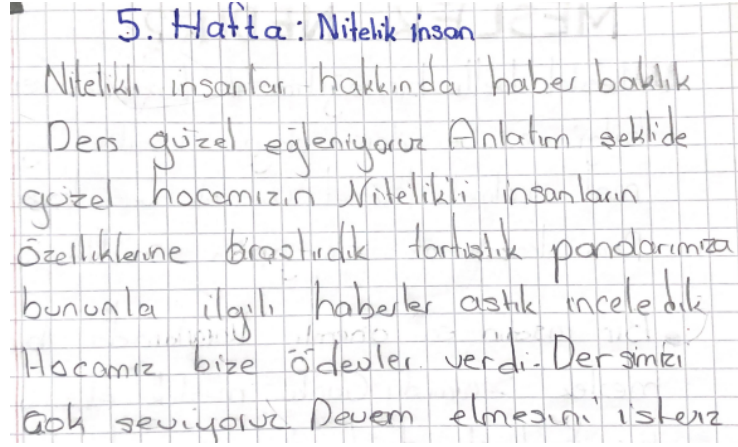 5. Hafta: Nitelik insan
Nitelikli insanlar hakkında haber baktık
Ders güzel eğleniyoruz Anlatım şeklide
güzel hocamızın Nitelikli insanların
özelliklerine tartıştık pandarımıza
bununla ilgili haberler astık inceledik
Hocamız bize ödevler verdi. Dersimizi
çok seviyoruz Devem etmesini isteriz